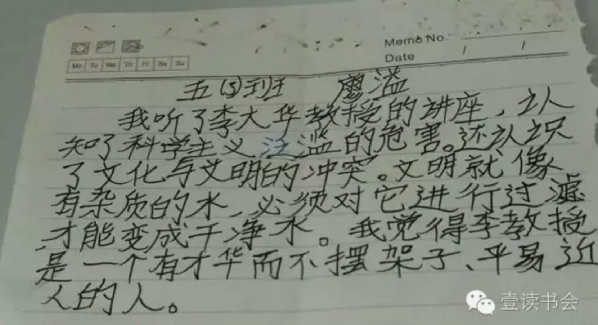 Memo No.
Mo Tu We Th Fr Sa Su
Date / /
五(5)班 廖溢
我听了李大华教授的讲座,认
知了科学主义泛滥的危害。还认识
了文化与文明的冲突。文明就像
有杂质的水,必须对它进行过滤
才能变成干净水。我觉得李教授
是一个有才华而不摆架子、平易近
人的人。
壹读书会